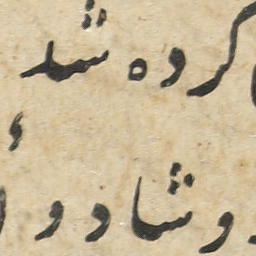 کرده شد
و شاد و